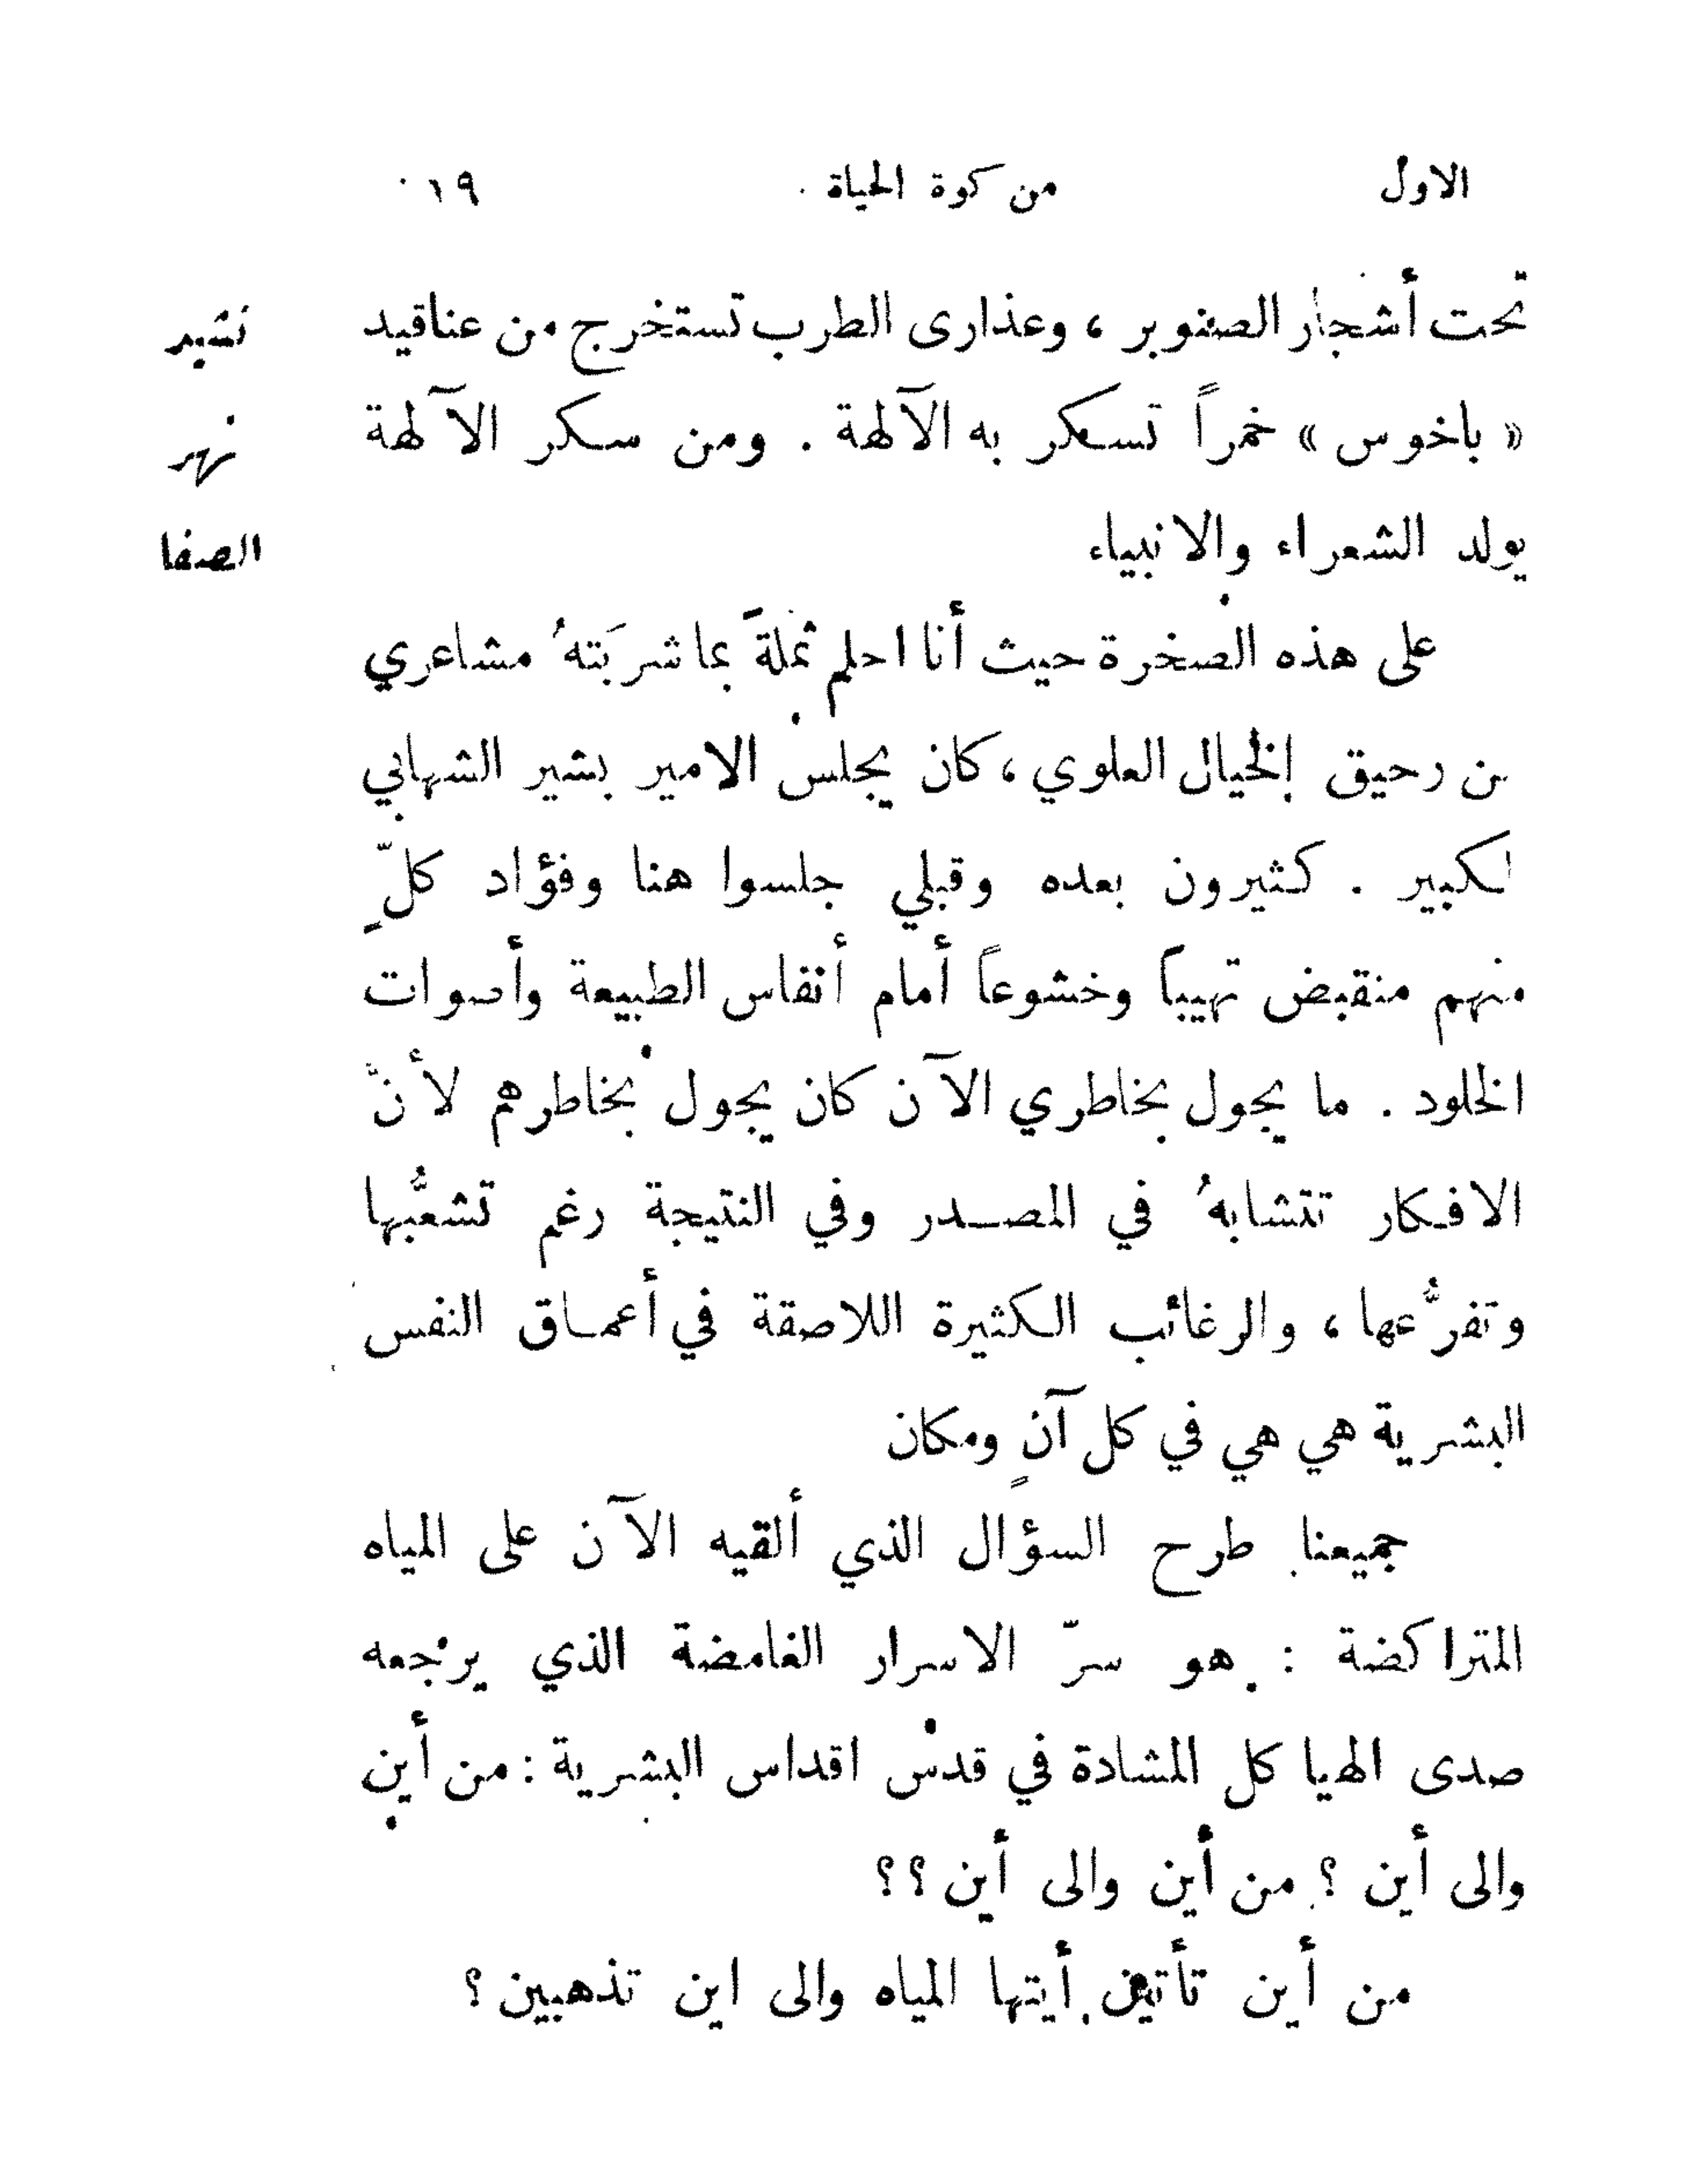 الاول من كوة الحياة ١٩
تحت أشجار الصنوبر ، وعذارى الطرب تستخرج من عناقيد
« باخوس » خمراً تسكر به الآلهة . ومن سكر الآلهة
يولد الشعراء والانبياء
نشيد
نهر
الصفا
على هذه الصخرة حيث أنا احلم ثملةً بما شربَتهُ مشاعري
من رحيق الخيال العلوي ، كان يجلس الامير بشير الشهابي
الكبير . كثيرون بعده وقبلي جلسوا هنا وفؤاد كلّ
منهم منقبض تهيباً وخشوعاً أمام أنفاس الطبيعة وأصوات
الخلود . ما يجول بخاطري الآن كان يجول بخاطرهم لأنّ
الافكار تتشابهُ في المصدر وفي النتيجة رغم تشعُّبها
وتفرُّعها ، والرغائب الكثيرة اللاصقة في أعماق النفس
البشرية هي هي في كل آنٍ ومكان
جميعنا طرح السؤال الذي ألقيه الآن على المياه
المتراكضة : هو سرّ الاسرار الغامضة الذي يرجعه
صدى الهيا كل المشادة في قدس اقداس البشرية : من أين
والى أين ؟ من أين والى أين ؟؟
من أين تأتين أيتها المياه والى اين تذهبين ؟